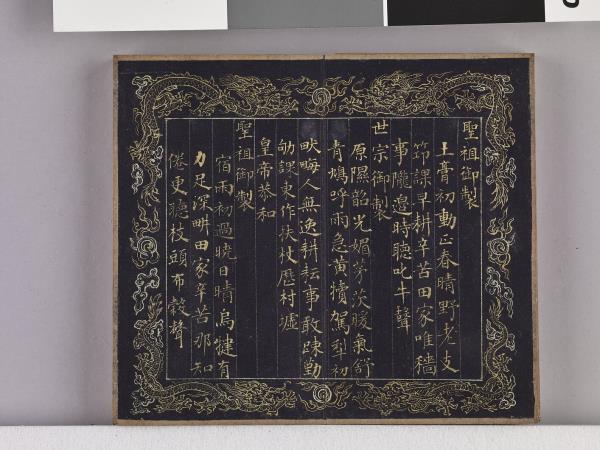 聖祖御製
土膏初動正春晴野老支
筇課早耕辛苦田家唯穡
事隴邉時聽叱牛聲
世宗御製
原隰韶光媚茅茨暖氣舒
青鳩呼雨急黄犢駕犁初
畎畮人無逸耕耘事敢疎勤
劬課吏作扶杖歷村墟
皇帝恭和
聖祖御製
宿雨初過曉日晴烏犍有
力足深畊田家辛苦那知
倦更聽枝頭布穀聲